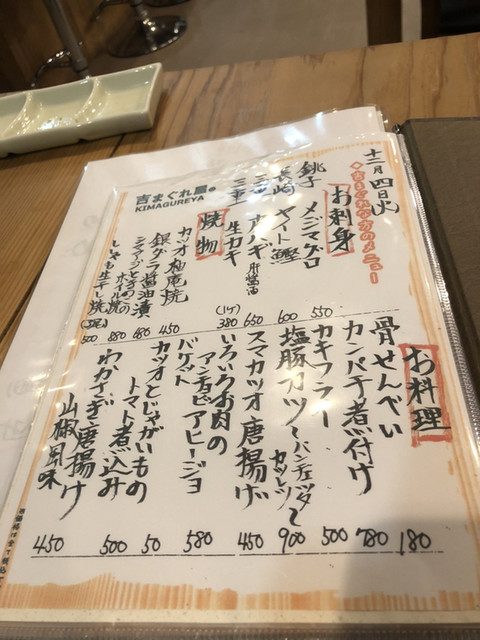 十二月四日(火)
吉まぐれな方のメニュー
お刺身
銚子 メジマグロ 550
長崎 ヤイト鰹 600
三重 カワハギ 肝醤油 650
三重 生カキ (1ケ) 380
吉まぐれ屋
KIMAGUREYA
焼物
カツオ柚庵焼 450
銀ダラ醤油漬 680
ホイル焼 880
生干し焼 500
お料理
骨せんべい 180
カンパチ煮付け 780
カキフライ 500
塩豚カツ〜パンチェッタカツレツ〜 900
スマカツオ唐揚げ 450
いろいろお肉の
アンチョビアヒージョ 580
バゲット 50
カツオとじゃがいもの
トマト煮込み 500
わかさぎ唐揚げ
山椒風味 450